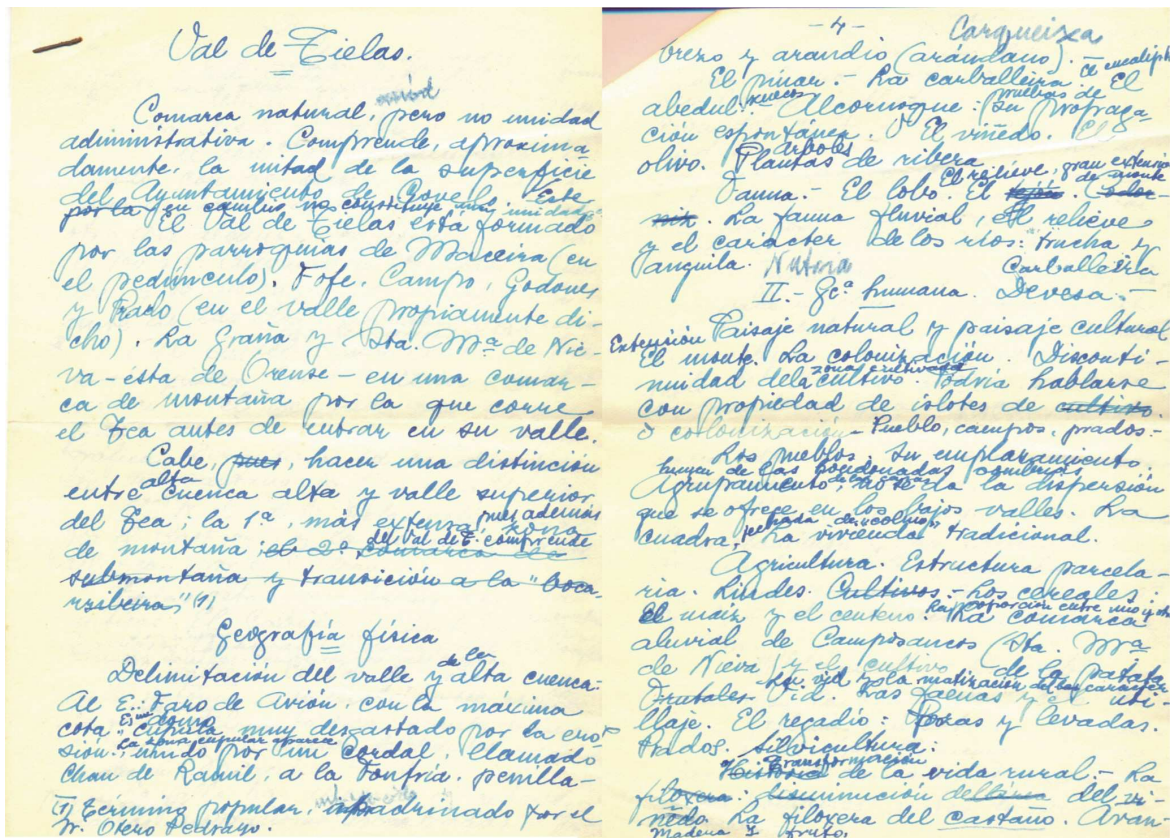 Val de Tielas.
Comarca natural, pero no unidad
administrativa. Comprende, aproxima
damente, la mitad de la superficie
del Ayuntamiento de Covelo. Este
por la no constituye unidad
El Val de Tielas está formado
por las parroquias de Maceira (en
el pedúnculo), Fofe, Campo, Godones
y Prado (en el valle propiamente di-
cho). La Graña y Sta. Mª de Nie-
va-ésta de Orense- en una comar-
ca de montaña por la que corre
el Tea antes de entrar en su valle.
Cabe, pues, hacer una distinción
alta
entre cuenca alta y valle superior
del Tea; la 1ª, más extensa, pues además
del Val de T. comprende
de montaña; el 2º, comarca de zona
submontaña y transición a la "boca
rribeira" (1)
Geografía física
Delimitación del valle y de la alta cuenca:
Al E.: Faro de Avión, con la máxima
cota. cúpula muy desgastado por la ero
sión; unido por un cordal, llamado
Chan de Ramil, a la Fonfría, penilla-
(1) Término popular, apadrinado por el
Sr. Otero Pedrayo.
-4- Carqueixa
brezo y arandio (arándano).-
El eucalipto
El pinar.- La carballeira
pruebas de El
abedul. Alcornoque: su propaga-
ción espontánea. El viñedo. El
árboles
olivo. Plantas de ribera
El relieve, gran extensión
de monte
Fauna.- El lobo. El tejón.
La fauna fluvial, el relieve
y el carácter de los ríos: trucha y
anguila. Nutria Carballeira
II.- Gcª humana. Devesa.-
Paisaje natural y paisaje cultural
Extensión
El monte. La colonización. Disconti-
zona cultivada
nuidad del cultivo. Podría hablarse
con propiedad de islotes de cultivo.
o colonización- Pueblo, campos, prados.-
Los pueblos: su emplazamiento,
huyen de las hondonadas sombrías
Agrupamiento; no se da la dispersión
que se ofrece en los bajos valles. La
cuadra, techada de "colmo"
La vivienda tradicional.
Agricultura. Estructura parcela-
ria. Lindes. Cultivos.- Los cereales:
El maíz y el centeno. La comarca
aluvial de Camposancos (Sta. Mª
de Nieva) y el cultivo de la patata
Frutales. Vid. Las faenas y el uti-
llaje. El regadío: Pozas y levadas.
Prados. Silvicultura:
Transformación
Historia de la vida rural.- La
filoxera: disminución del vi-
ñedo. La filoxera del castaño. Avan-
Madera y fruto.